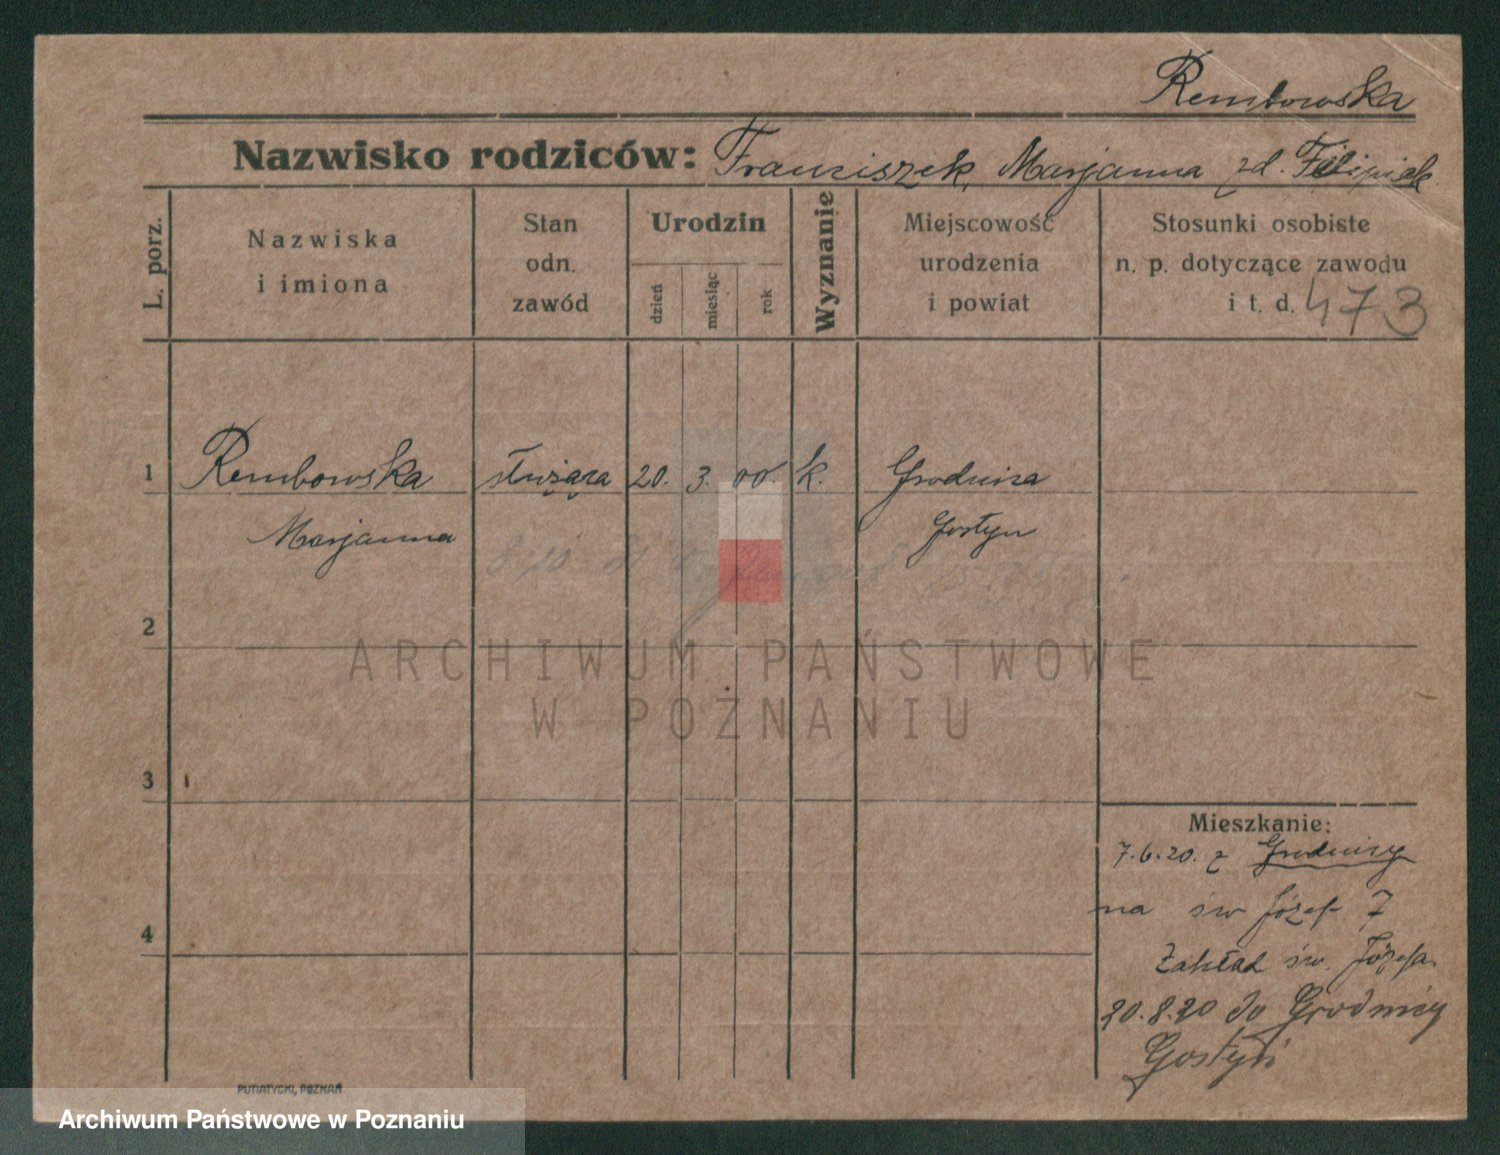 Rembowska
Nazwisko rodziców: Franciszek, Marjanna zd. Filipiak
L. porz.
Nazwiska
i imiona
Stan
odn.
zawód
Urodzin
dzień
miesiąc
rok
Wyznanie
Miejscowość
urodzenia
i powiat
Stosunki osobiste
n. p. dotyczące zawodu
i t. d. 473
1 Rembowska służąca 20. 3. 00 k. Grodnica
Marjanna Gostyn
8 10
2
ARCHIWUM PAŃSTWOWE
W POZNANIU
3
Mieszkanie:
7.6.20. z Grodnicy
na św Józef 7
4
Zakład św. Józefa
20.8.20 do Grodnicy
Gostyń
PUTIATYCKI, POZNAŃ
Archiwum Państwowe w Poznaniu